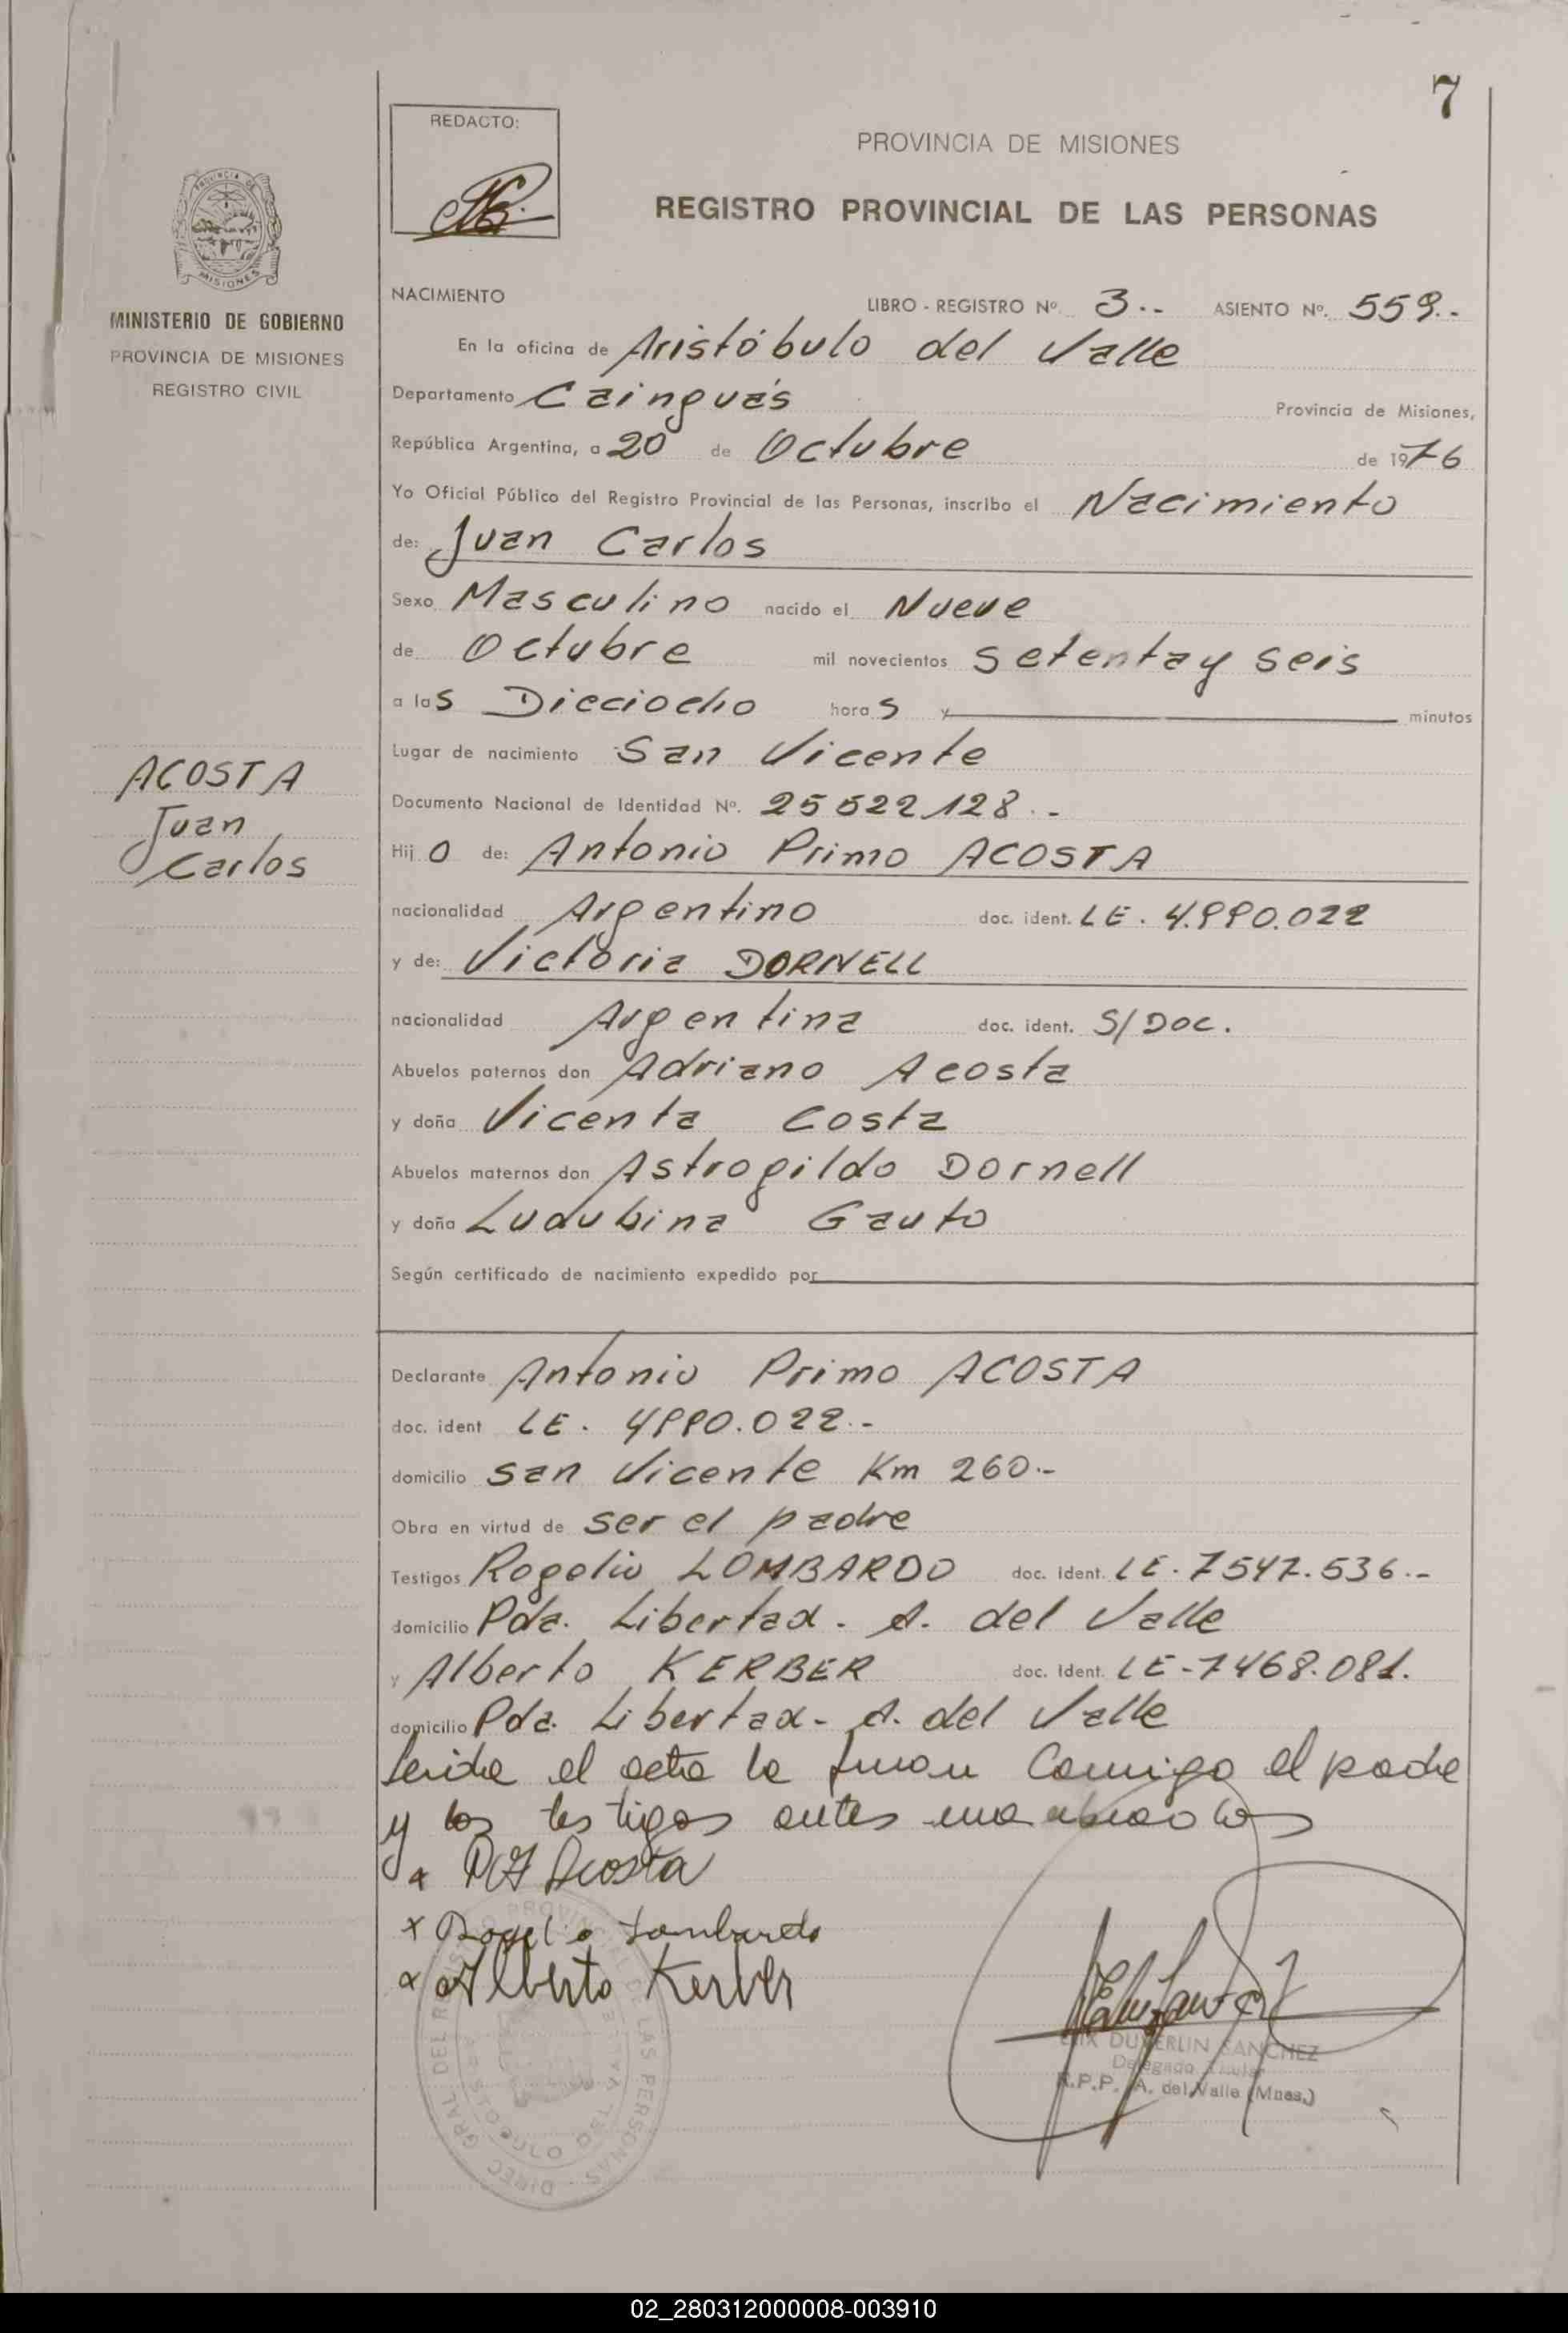 7
REDACTO:
PROVINCIA DE MISIONES
REGISTRO PROVINCIAL DE LAS PERSONAS
PROVINCIA DE
MISIONES
MINISTERIO DE GOBIERNO
PROVINCIA DE MISIONES
REGISTRO CIVIL
ACOSTA
Juan
Carlos
NACIMIENTO LIBRO - REGISTRO Nº 3.- ASIENTO Nº. 559.-
En la oficina de Aristóbulo del Valle
Departamento Cainguás Provincia de Misiones,
República Argentina, a 20 de Octubre de 1976
Yo Oficial Público del Registro Provincial de las Personas, inscribo el Nacimiento
de: Juan Carlos
Sexo Masculino nacido el Nueve
de Octubre mil novecientos setenta y seis
a las Dieciocho horas y minutos
Lugar de nacimiento San Vicente
Documento Nacional de Identidad Nº. 25522128.-
Hijo de: Antonio Primo ACOSTA
nacionalidad Argentino doc. ident. LE. 4.990.022
y de: Victoria DORNELL
nacionalidad Argentina doc. ident. S/Doc.
Abuelos paternos don Adriano Acosta
y doña Vicenta Costa
Abuelos maternos don Astrogildo Dornell
y doña Ludubina Gauto
Según certificado de nacimiento expedido por
Declarante Antonio Primo ACOSTA
doc. ident LE. 4990.022.-
domicilio San Vicente Km 260.-
Obra en virtud de ser el padre
Testigos Rogelio LOMBARDO doc. ident. LE. 7547.536.-
domicilio Pda. Libertad - A. del Valle
y Alberto KERBER doc. ident. LE-7468.081.
domicilio Pda. Libertad - A. del Valle
Leída el acta la firman Comigo el padre
y los testigos antes
x Acosta
x Rogelio Lombardo
x Alberto Kerber
DUVERLIN SANCHEZ
Delegado Titular
R.P.P. A. del Valle (Mnes.)
DIREC. GRAL DEL REGISTRO PROVINCIAL DE LAS PERSONAS
ARISTOBULO DEL VALLE
02_280312000008-003910